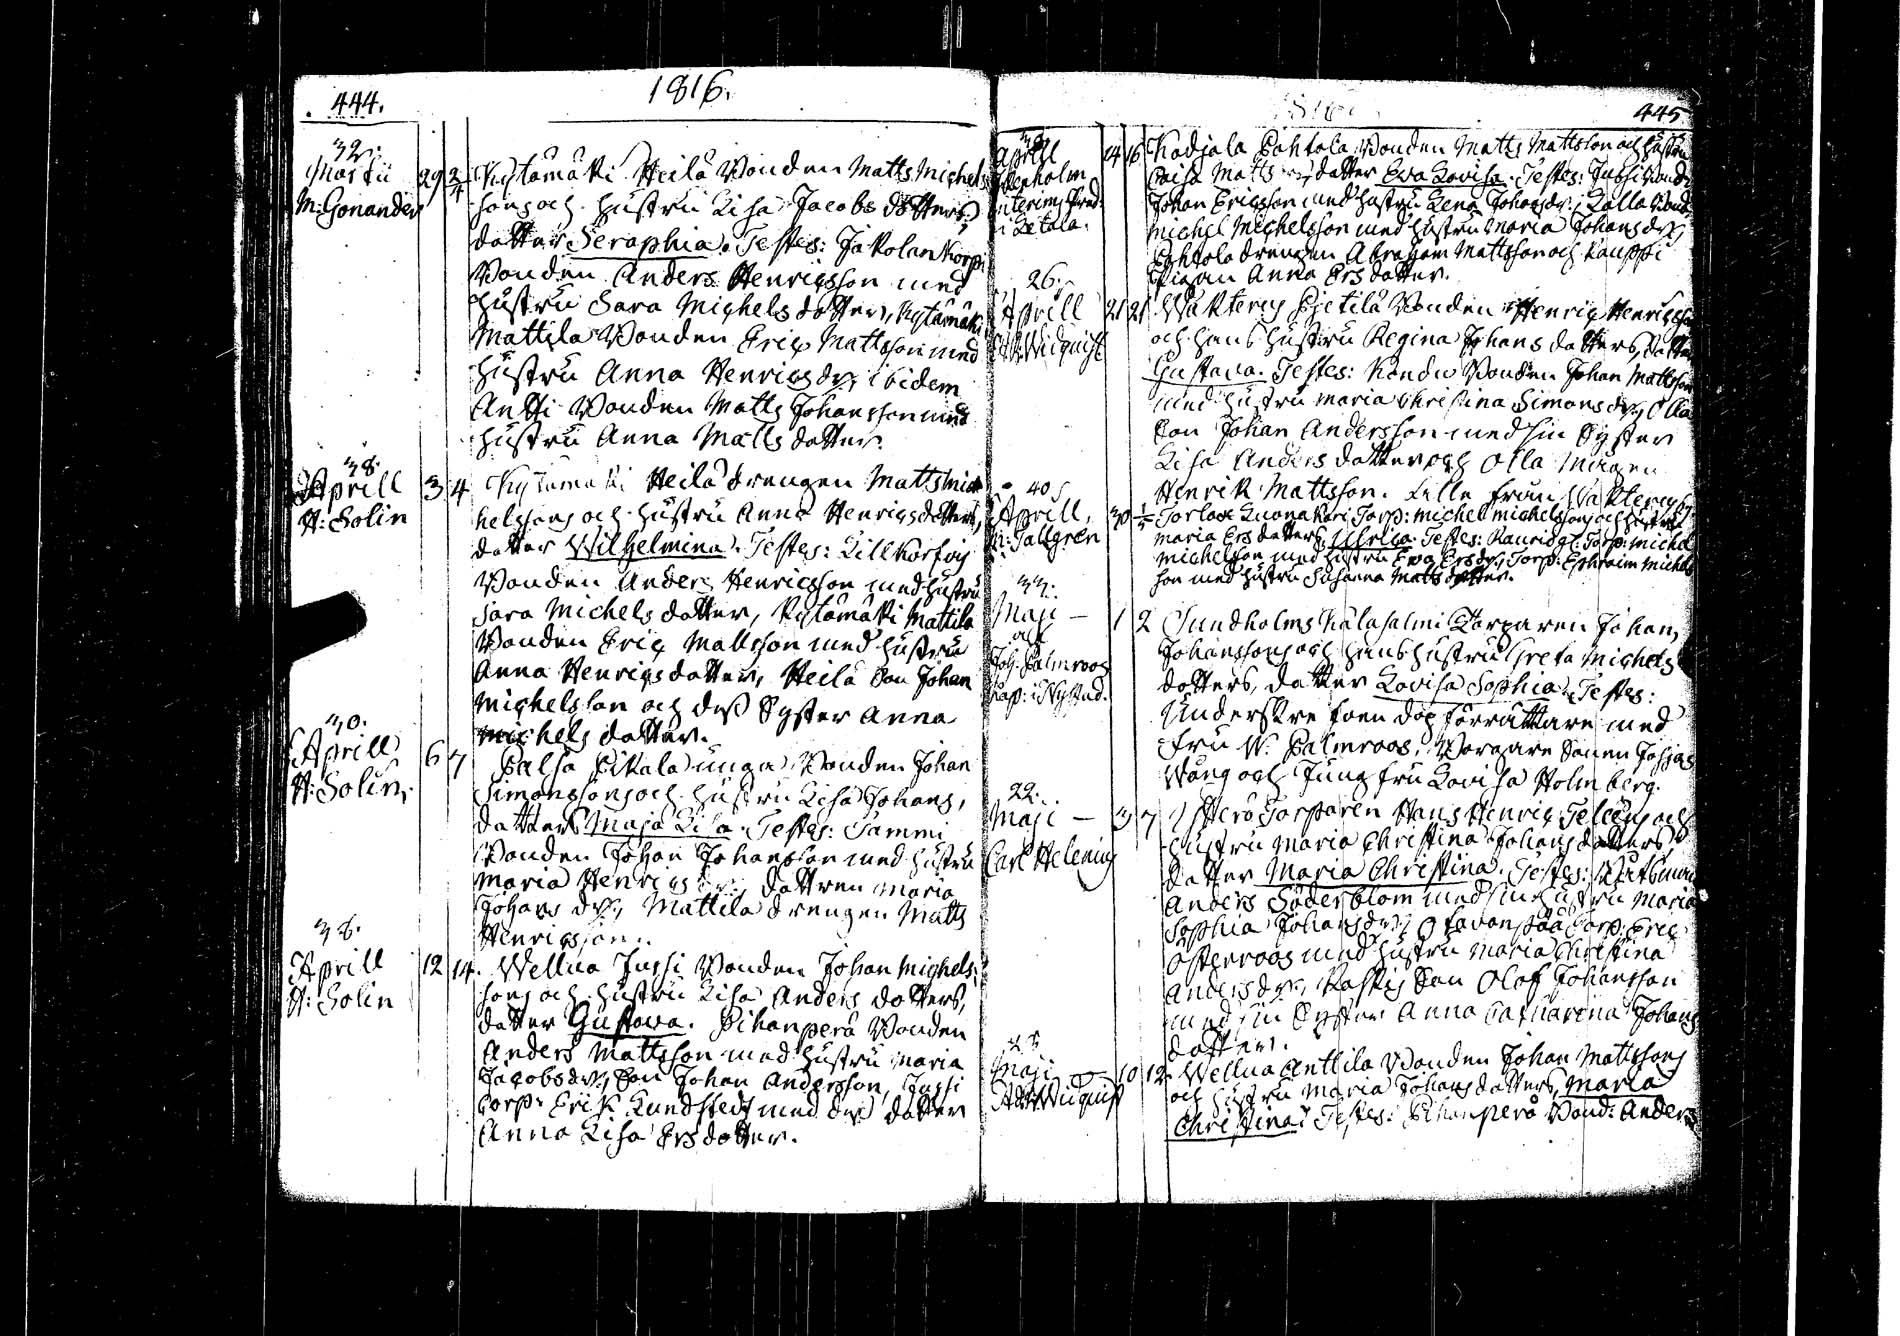 444.
1816.
32.
Martii 29 2/4 Kytämäki Heilä Bonden Matts Michels
M: Gonander
sons och hustru Lisa Jacobs dotters,
dotter Seraphia. Testes: Jakolan Korpi
Bonden Anders Henricsson med
hustru Sara Michels dotter, Kytämäki
Mattila Bonden Eric Mattsson med
hustru Anna Henrics dr, ibidem
Antti Bonden Matts Johansson med
hustru Anna Matts dotter.
38.
Aprill 3 4 Kytämäki Heilä drengen Matts Mic
H: Solin
helssons och hustru Anna Henrics dotters,
dotter Wilhelmina. Testes: Lill Korhoj
Bonden Anders Henricsson med hustru
Sara Michels dotter, Kytämäki Mattila
Bonden Eric Mattsson med hustru
Anna Henrics dotter, Heilä Son Johan
Michelsson och dess Syster Anna
Michels dotter.
30.
Aprill 6 7 Salsa Pikala unga Bonden Johan
H: Solin.
Simonssons och hustru Lisa Johans,
dotters Maja Lisa. Testes: Tammi
Bonden Johan Johansson med hustru
Maria Henrics dr, dottren Maria
Johans dr, Mattila drengen Matts
Henricsson.
38.
Aprill 12 14. Wellua Jussi Bonden Johan Michels,
H: Solin
sons och hustru Lisa Anders dotters,
dotter Gustava. Pihanperä Bonden
Anders Mattsson med hustru Maria
Jacobs dr, Son Johan Andersson, Jussi
Corp. Erik Lundstedt med dess dotter
Anna Lisa Ers dotter.
445
Aprill 14 16 Kodjala Pohtola Bonden Matts Mattsson och hustru
Caisa Matts dotter Eva Lovisa. Testes: Jussi Bond
Interims Pred.
i Letala.
Johan Ericsson med hustru Lena Johans dr, Lalla Bond
Michel Michelsson med hustru Maria Johans dr,
Pohtola drengen Abraham Mattsson och Kauppi
Pigan Anna Ers dotter.
26.
Aprill 21 21 Wakterny Pietilä Bonden Henric Henricsson
Widquist
och hans hustru Regina Johans dotters, dotter
Gustava. Testes: Bonden Johan Mattsson
med hustru Maria Christina Simons dr, Olla
Son Johan Andersson med sin Syster
Lisa Anders dotter och Olla Mågen
Henrik Mattsson. Lille från
40
Aprill, 30 1/5 Torlax Luonakari Torp: Michel Michelssons och hustru
M: Tallgren
Maria Ers dotters Ulrica. Testes: Torp: Michel
Michelsson med hustru Eva Ers dr, Torp: Ephraim Michels
son med hustru Susanna Matts dotter.
33.
Maji — 1 2 Sundholms Kalasalmi Torparen Johan
af
Joh. Palmroos
Kap: i Nystad.
Johanssons och hans hustru Greta Michels
dotters, dotter Lovisa Sophia. Testes:
Underskrefven dop förrättare med
Fru W. Palmroos, Borgare Sonen Johan
Wång och Jungfru Lovisa Holmberg.
22.
Maji — 3 7 Torparen Hans Henric Telleens och
Carl Helenius
hustru Maria Christina Johans dotters,
dotter Maria Christina. Testes:
Anders Söderblom med sin hustru Maria
Sophia Johans dr, Otavanpää Torp: Eric
Österroos med hustru Maria Christina
Anders dr, Son Olof Johansson
med sin Syster Anna Catharina Johans
dotter.
Maji 10 12 Wellua Anttila Bonden Johan Mattssons
Widquist
och hustru Maria Johans dotters, Maria
Christina. Testes: Pihanperä Bond: Anders